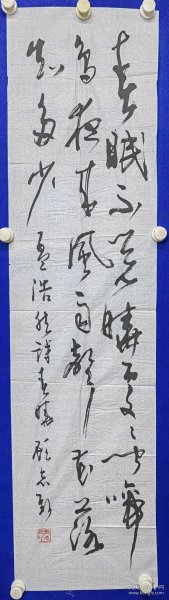 春眠不觉晓处处闻啼
鸟夜来风雨声花落
知多少
孟浩然诗春晓 顾志新